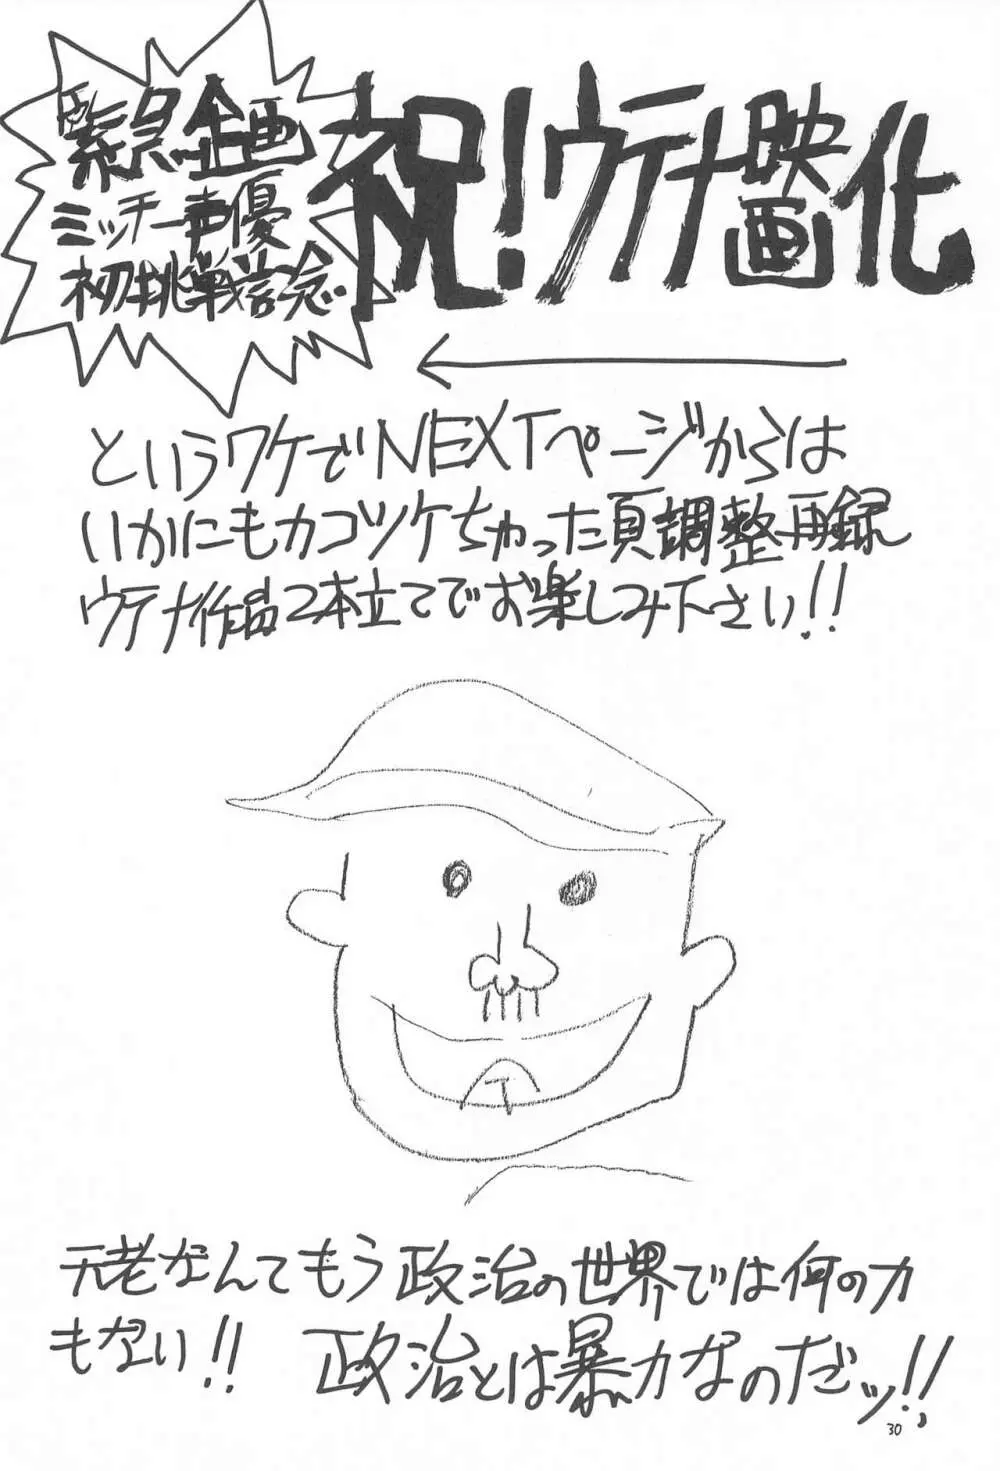 緊急企画
ミッチー声優
初挑戦記念
祝!ウテナ映画化
というワケでNEXTページからは
いかにもカコツケちゃった頁調整再録
ウテナ作品2本立てでお楽しみ下さい!!
元老なんてもう政治の世界では何の力
もない!! 政治とは暴力なのだッ!!
30